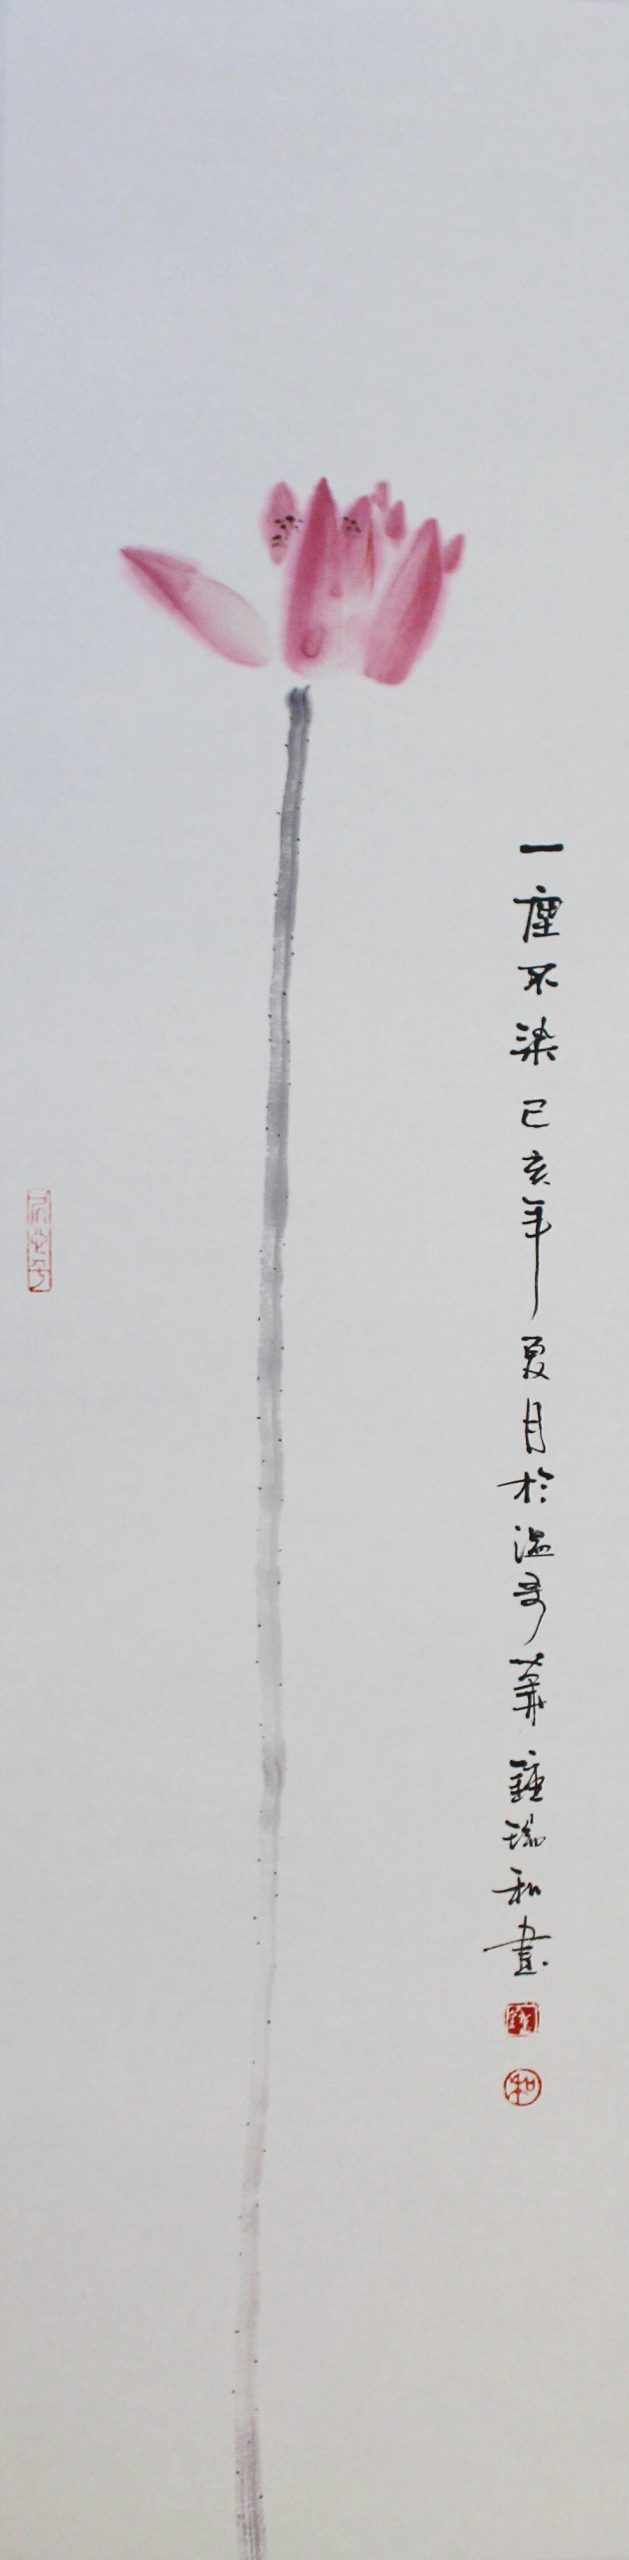 一塵不染己亥年夏月於溫哥華鍾瑞和畫
和